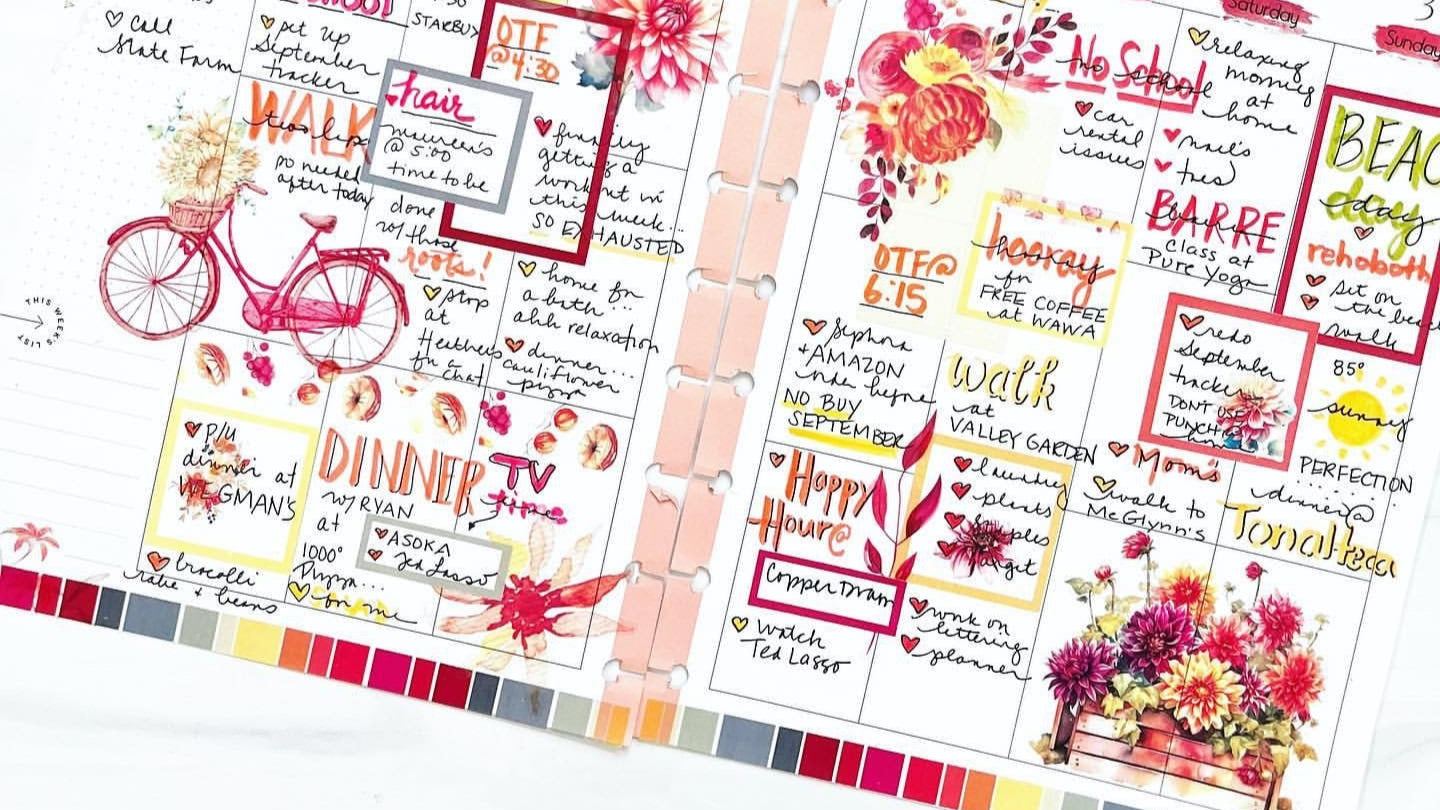 School
call
State Farm
THIS WEEK'S LIST
put up
September
tracker
WALK
two laps
no needed
after today
p/u
dinner at
WEGMAN'S
brocolli
katie + beans
:30
STARBUX
hair
maureen's
@ 5:00
time to be
done
w/ those
roots!
stop
at
Heather's
for a chat
DINNER
w/ RYAN
at
1000°
Pizza...
on me
OTF
@4:30
finally
getting a
work out in
this week...
SO EXHAUSTED
home for
a bath...
ahh relaxation
dinner...
cauliflower
pizza
TV
time
ASOKA
Ted Lasso
OTF@
6:15
Sephora
+ AMAZON
order before
NO BUY
SEPTEMBER
Happy
Hour@
Copper Dram
watch
Ted Lasso
No School
no school
car
rental
issues
hooray
hooray
for
FREE COFFEE
at WAWA
walk
at
VALLEY GARDEN
laundry
plants
target
work on
lettering
planner
Saturday
relaxing
morning
at
home
BARRE
class at
Pure Yoga
redo
September
tracker
DON'T USE
PUNCH
Mom's
walk to
McGlynn's
3
Sunday
BEAC
day
rehoboth
sit on
the beach
walk
85°
sunny
PERFECTION
dinner @
Tonalteca